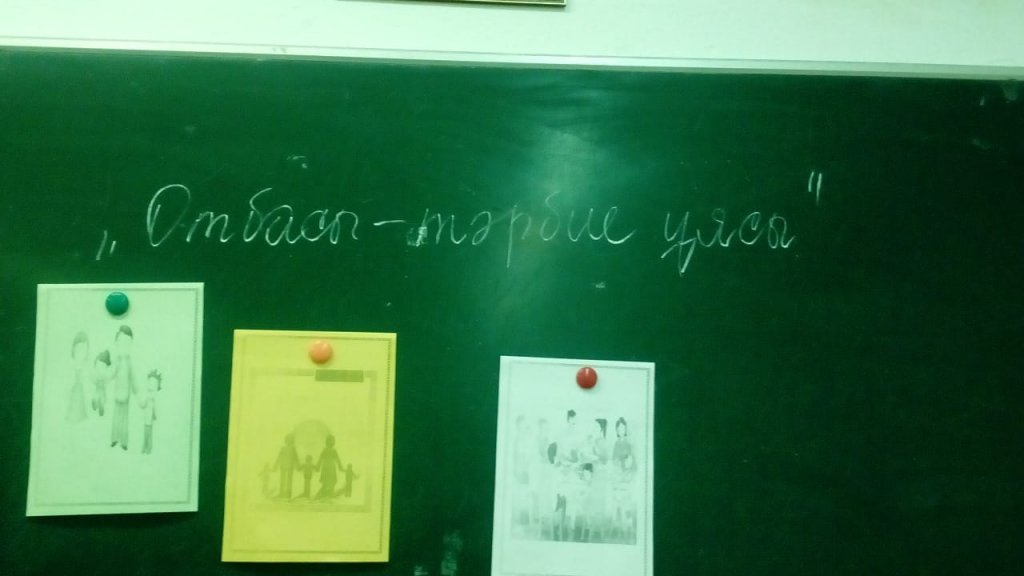 „Отбасы – тәрбие ұясы"